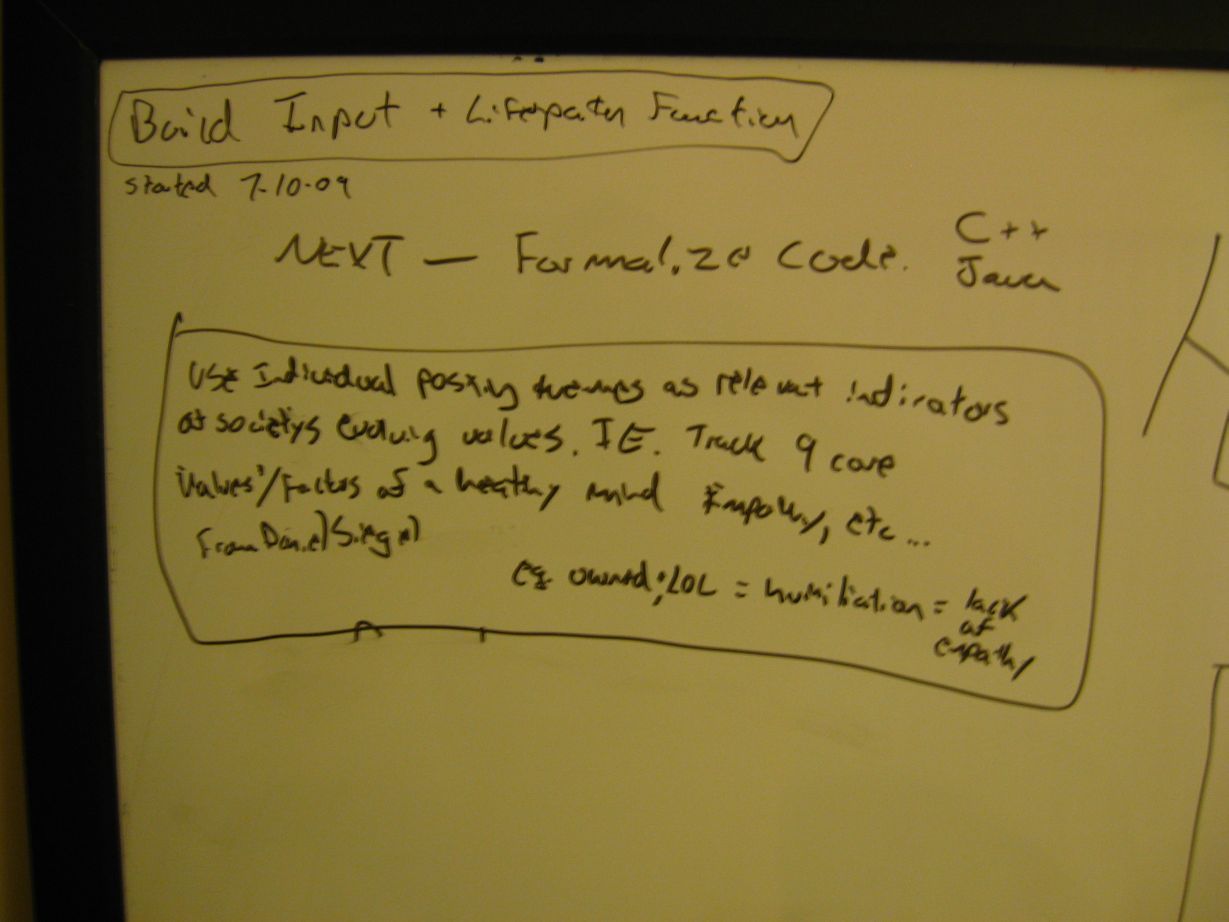 Build Input + Lifepath Function
started 7-10-09
NEXT — Formalize Code.
C++
Java
Use Individual posting themes as relevant indicators
of societys evolving values. IE. Track 9 core
Values'/Factors of a healthy mind Empathy, etc...
From Daniel Siegel
eg. owned; LOL = humiliation = lack
of
empathy